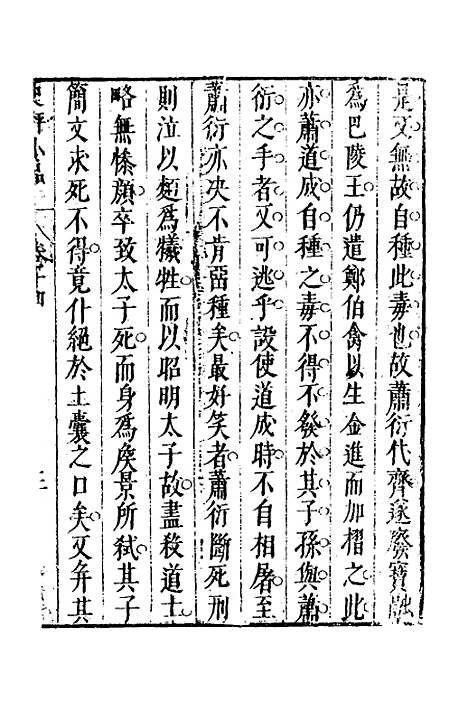 是又無故自種此毒也故蕭衍代齊遂廢寶融
為巴陵王仍遣鄭伯禽以生金進而加摺之此
亦蕭道成自種之毒不得不發於其子孫與蕭
衍之手者又可逃乎設使道成時不自相屠至
蕭衍亦決不肯畱種矣最好笑者蕭衍斷死刑
則泣以麪爲犧牲而以昭明太子故盡殺道士
略無慘顔卒致太子死而身爲矦景所弑其子
簡文求死不得竟什絕於土囊之口矣又弁其
卷十四